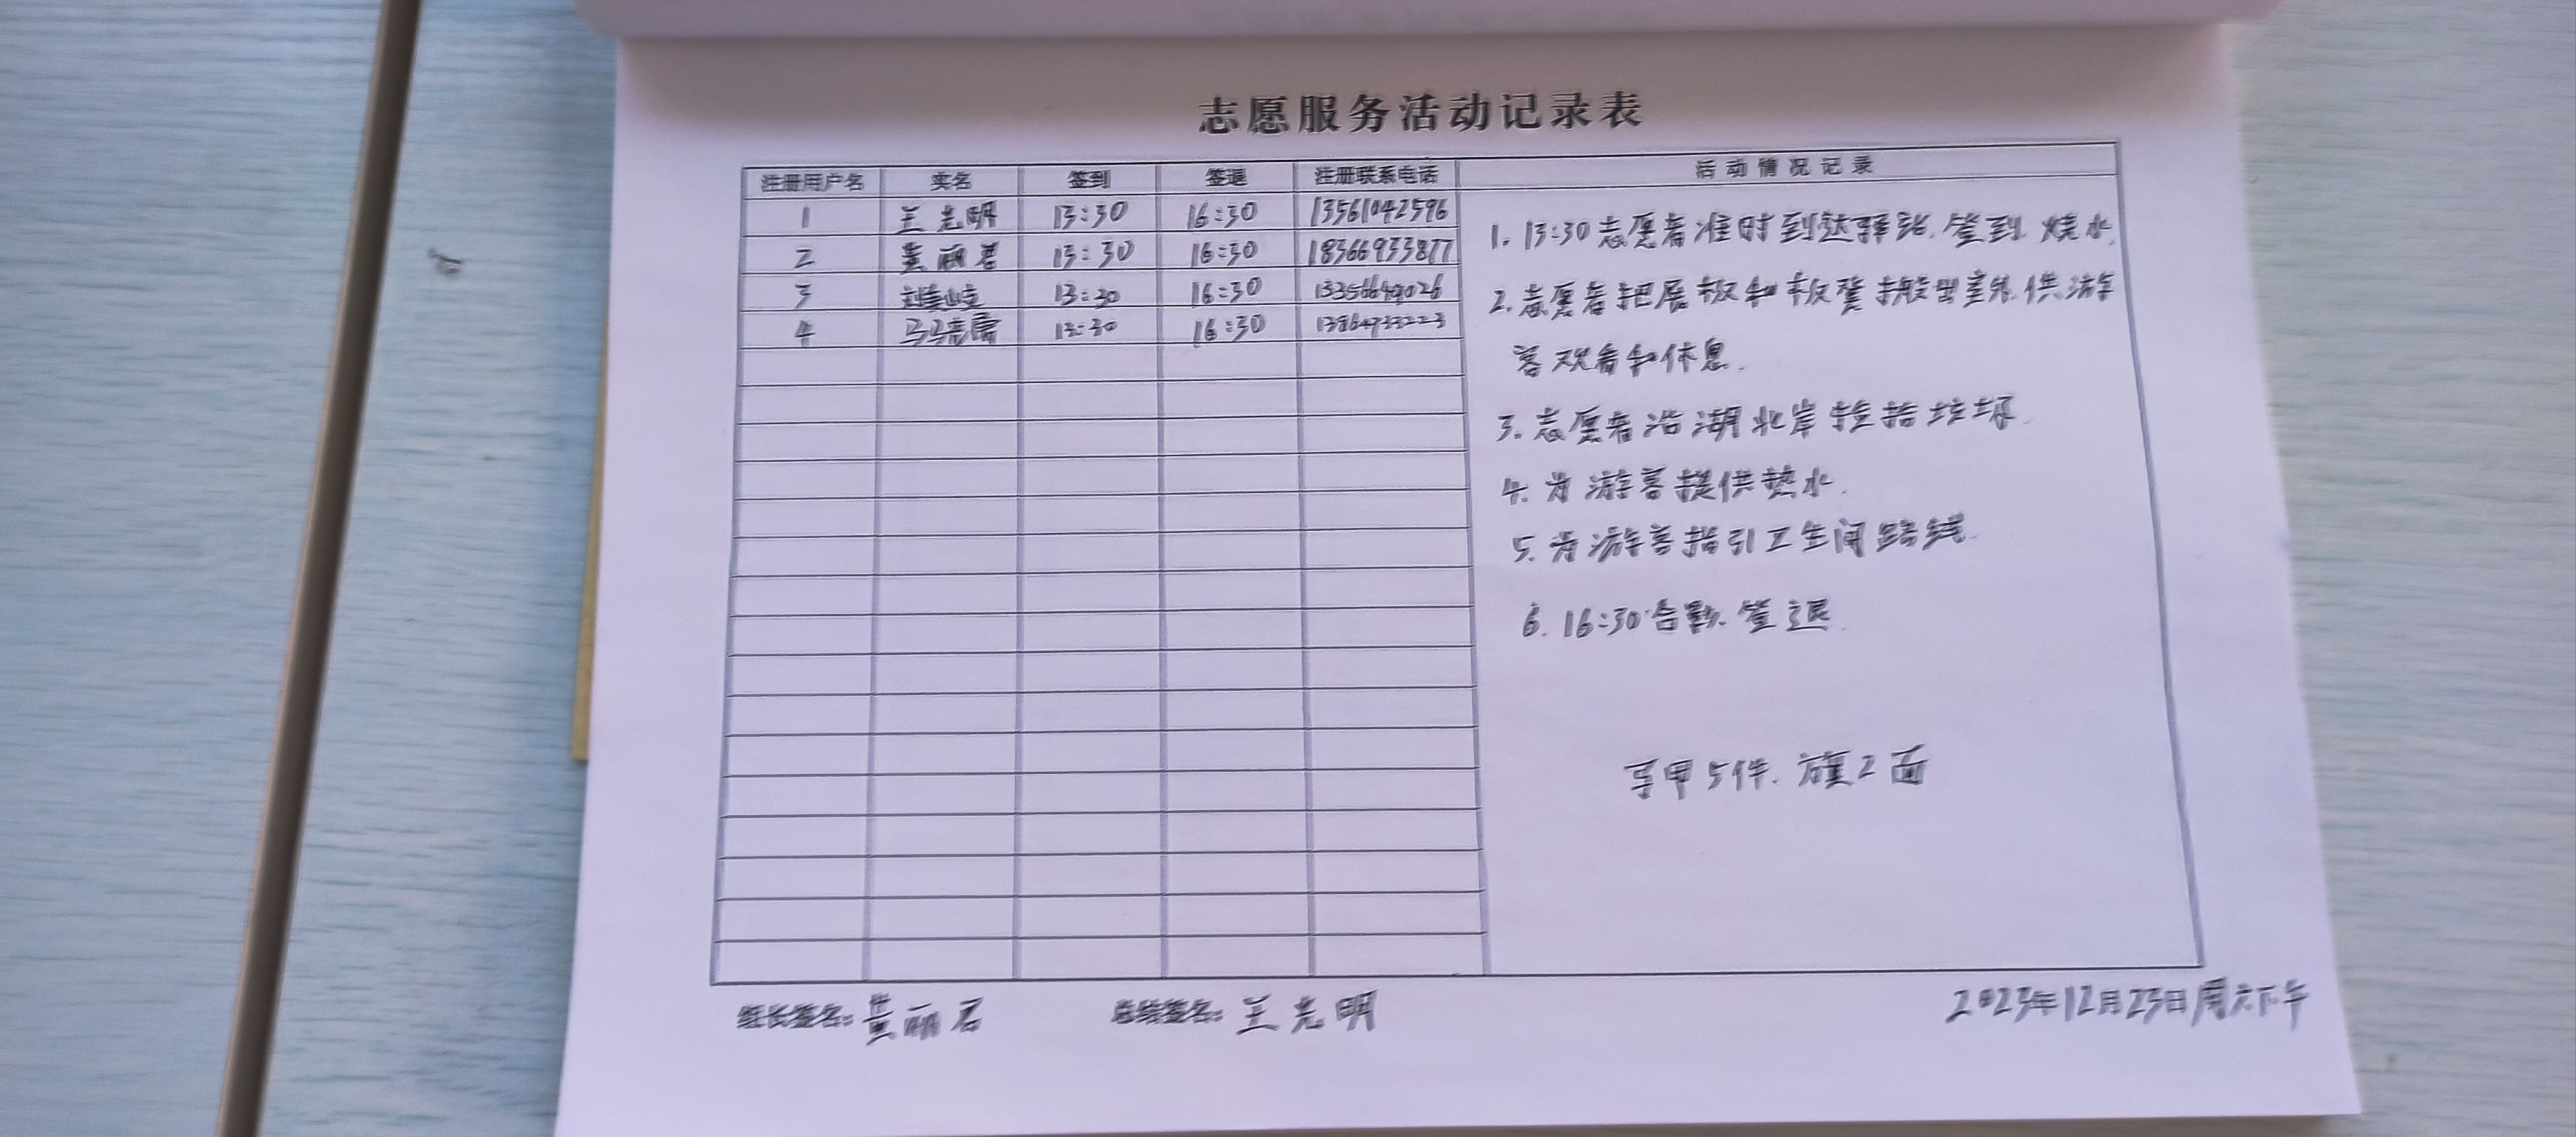 志愿服务活动记录表
注册用户名 实名 签到 签退 注册联系电话 活动情况记录
1 王光明 13:30 16:30 13561042596
2 董丽君 13:30 16:30 18366933877
3 13:30 16:30
4 13:30 16:30 13864733223
1. 13:30志愿者准时到达驿站.签到.烧水.
2.志愿者把展板和板凳搬出室外.供游
客观看和休息.
3.志愿者沿湖北岸捡拾垃圾.
4.为游客提供热水.
5.为游客指引卫生间路线.
6. 16:30合影.签退.
马甲5件.旗2面
组长签名:董丽君 总结签名:王光明 2023年12月23日周六下午